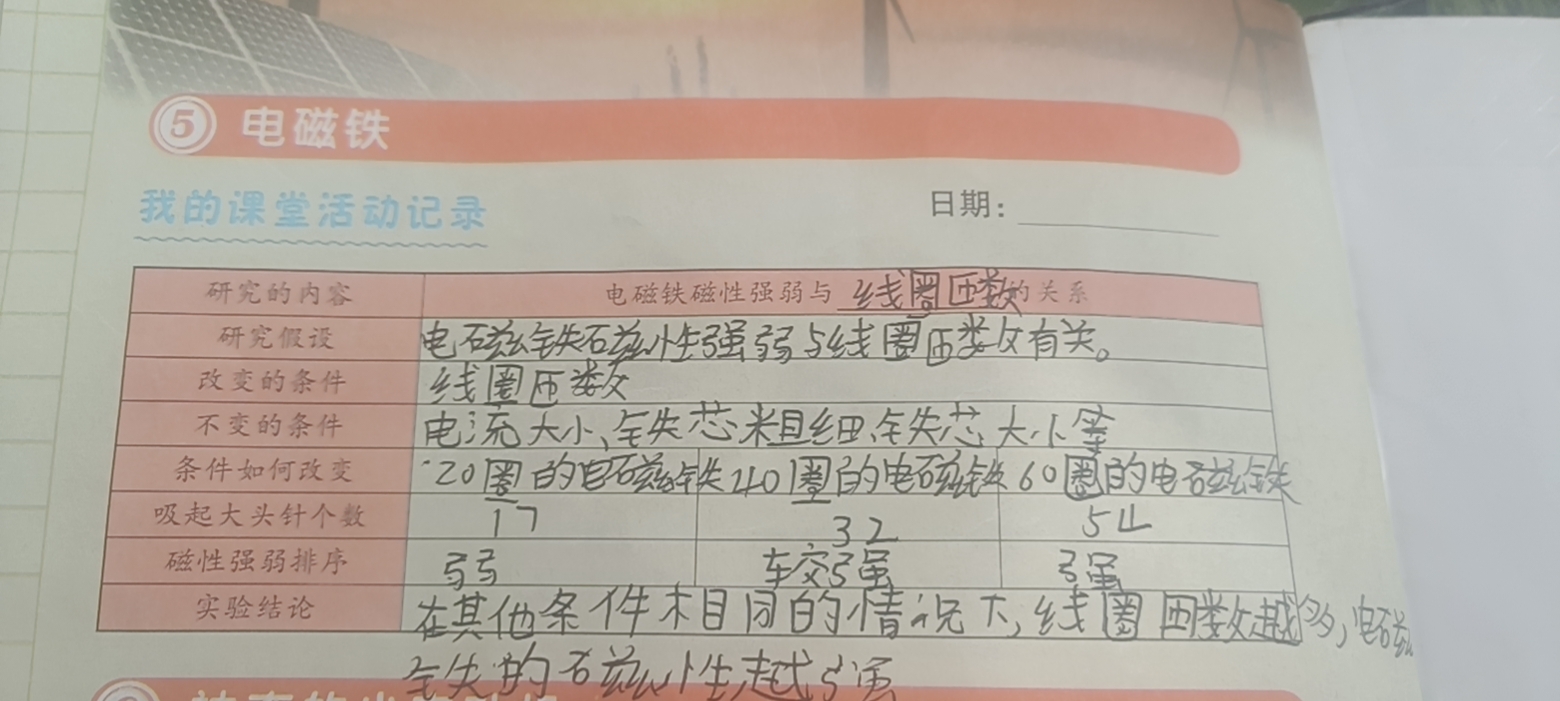 5 电磁铁
我的课堂活动记录 日期：
研究的内容 电磁铁磁性强弱与 线圈匝数 的关系
研究假设 电磁铁磁性强弱与线圈匝数有关。
改变的条件 线圈匝数
不变的条件 电流大小、铁芯粗细、铁芯大小等
条件如何改变 20圈的电磁铁 40圈的电磁铁 60圈的电磁铁
吸起大头针个数 17 32 54
磁性强弱排序 弱 较强 强
实验结论 在其他条件相同的情况下，线圈匝数越多，电磁
铁的磁性越强